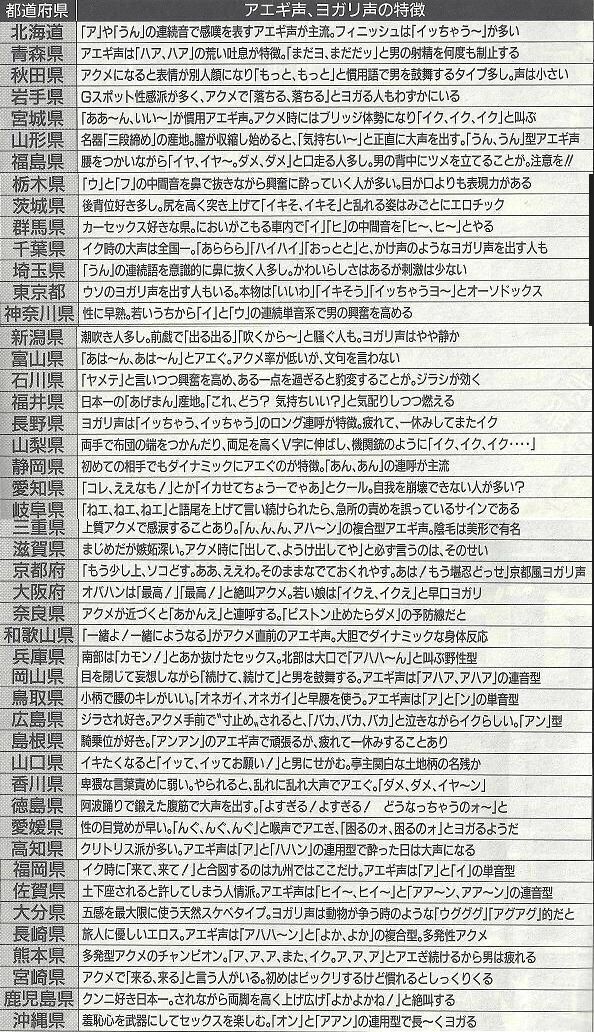 都道府県 アエギ声、ヨガリ声の特徴
北海道 「ア」や「うん」の連続音で感嘆を表すアエギ声が主流。フィニッシュは「イッちゃう〜」が多い
青森県 アエギ声は「ハア、ハア」の荒い吐息が特徴。「まだヨ、まだだッ」と男の射精を何度も制止する
秋田県 アクメになると表情が別人顔になり「もっと、もっと」と慣用語で男を鼓舞するタイプ多し。声は小さい
岩手県 Gスポット性感派が多く、アクメで「落ちる、落ちる」とヨガる人もわずかにいる
宮城県 「ああ〜ん、いい〜」が慣用アエギ声。アクメ時にはブリッジ体勢になり「イク、イク、イク」と叫ぶ
山形県 名器「三段締め」の産地。膣が収縮し始めると、「気持ちい〜」と正直に大声を出す。「うん、うん」型アエギ声
福島県 腰をつかいながら「イヤ、イヤ〜。ダメ、ダメ」と口走る人多し。男の背中にツメを立てることが。注意を!!
栃木県 「ウ」と「フ」の中間音を鼻で抜きながら興奮に酔っていく人が多い。目が口よりも表現力がある
茨城県 後背位好き多し。尻を高く突き上げて「イキそ、イキそ」と乱れる姿はみごとにエロチック
群馬県 カーセックス好きな県。においがこもる車内で「イ」「ヒ」の中間音を「ヒ〜、ヒ〜」とやる
千葉県 イク時の大声は全国一。「あららら」「ハイハイ」「おっとと」と、かけ声のようなヨガリ声を出す人も
埼玉県 「うん」の連続語を意識的に鼻に抜く人多し。かわいらしさはあるが刺激は少ない
東京都 ウソのヨガリ声を出す人もいる。本物は「いいわ」「イキそう」「イッちゃうヨ〜」とオーソドックス
神奈川県 性に早熟。若いうちから「イ」と「ウ」の連続単音系で男の興奮を高める
新潟県 潮吹き人多し。前戯で「出る出る」「吹くから〜」と騒ぐ人も。ヨガリ声はやや静か
富山県 「あは〜ん、あは〜ん」とアエぐ。アクメ率が低いが、文句を言わない
石川県 「ヤメテ」と言いつつ興奮を高め、ある一点を過ぎると豹変することが。ジラシが効く
福井県 日本一の「あげまん」産地。「これ、どう? 気持ちいい?」と気配りしつつ燃える
長野県 ヨガリ声は「イッちゃう、イッちゃう」のロング連呼が特徴。疲れて、一休みしてまたイク
山梨県 両手で布団の端をつかんだり、両足を高くV字に伸ばし、機関銃のように「イク、イク、イク・・・・」
静岡県 初めての相手でもダイナミックにアエぐのが特徴。「あん、あん」の連呼が主流
愛知県 「コレ、ええなも!」とか「イカせてちょうーでゃあ」とクール。自我を崩壊できない人が多い?
岐阜県 「ねエ、ねエ、ねエ」と語尾を上げて言い続けられたら、急所の責めを誤っているサインである
三重県 上質アクメで感涙することあり。「ん、ん、ん、アハ〜ン」の複合型アエギ声。陰毛は美形で有名
滋賀県 まじめだが嫉妬深い。アクメ時に「出して、ようけ出してや」と必ず言うのは、そのせい
京都府 「もう少し上、ソコどす。ああ、ええわ。そのままなでておくれやす。あは!もう堪忍どっせ」京都風ヨガリ声
大阪府 オバハンは「最高!」「最高!」と絶叫アクメ。若い娘は「イクえ、イクえ」と早口ヨガリ
奈良県 アクメが近づくと「あかんえ」と連呼する。「ピストン止めたらダメ」の予防線だと
和歌山県 「一緒よ!一緒にようなる」がアクメ直前のアエギ声。大胆でダイナミックな身体反応
兵庫県 南部は「カモン!」とあか抜けたセックス。北部は大口で「アハハ〜ん」と叫ぶ野性型
岡山県 目を閉じて妄想しながら「続けて、続けて」と男を鼓舞する。アエギ声は「アハア、アハア」の連音型
鳥取県 小柄で腰のキレがいい。「オネガイ、オネガイ」と早腰を使う。アエギ声は「ア」と「ン」の単音型
広島県 ジラされ好き。アクメ手前で“寸止め〟されると、「バカ、バカ、バカ」と泣きながらイクらしい。「アン」型
島根県 騎乗位が好き。「アンアン」のアエギ声で頑張るが、疲れて一休みすることあり
山口県 イキたくなると「イッて、イッてお願い!」と男にせがむ。亭主関白な土地柄の名残か
香川県 卑猥な言葉責めに弱い。やられると、乱れに乱れ大声でアエぐ。「ダメ、ダメ、イヤ〜ン」
徳島県 阿波踊りで鍛えた腹筋で大声を出す。「よすぎる!よすぎる! どうなっちゃうのォ〜」と
愛媛県 性の目覚めが早い。「んぐ、んぐ、んぐ」と喉声でアエギ、「困るのォ、困るのォ」とヨガるようだ
高知県 クリトリス派が多い。アエギ声は「ア」と「ハハン」の連用型で酔った日は大声になる
福岡県 イク時に「来て、来て!」と合図するのは九州ではここだけ。アエギ声は「ア」と「イ」の単音型
佐賀県 土下座されると許してしまう人情派。アエギ声は「ヒイ〜、ヒイ〜」と「アア〜ン、アア〜ン」の連音型
大分県 五感を最大限に使う天然スケベタイプ。ヨガリ声は動物が争う時のような「ウグググ」「アグアグ」的だと
長崎県 旅人に優しいエロス。アエギ声は「アハハ〜ン」と「よか、よか」の複合型。多発性アクメ
熊本県 多発型アクメのチャンピオン。「ア、ア、ア、また、イク。ア、ア、ア」とアエぎ続けるから男は疲れる
宮崎県 アクメで「来る、来る」と言う人がいる。初めはビックリするけど慣れるとしっくりくる
鹿児島県 クンニ好き日本一。されながら両脚を高く上げ広げ「よかよかね!」と絶叫する
沖縄県 羞恥心を武器にしてセックスを楽しむ。「オン」と「アアン」の連用型で長〜くヨガる